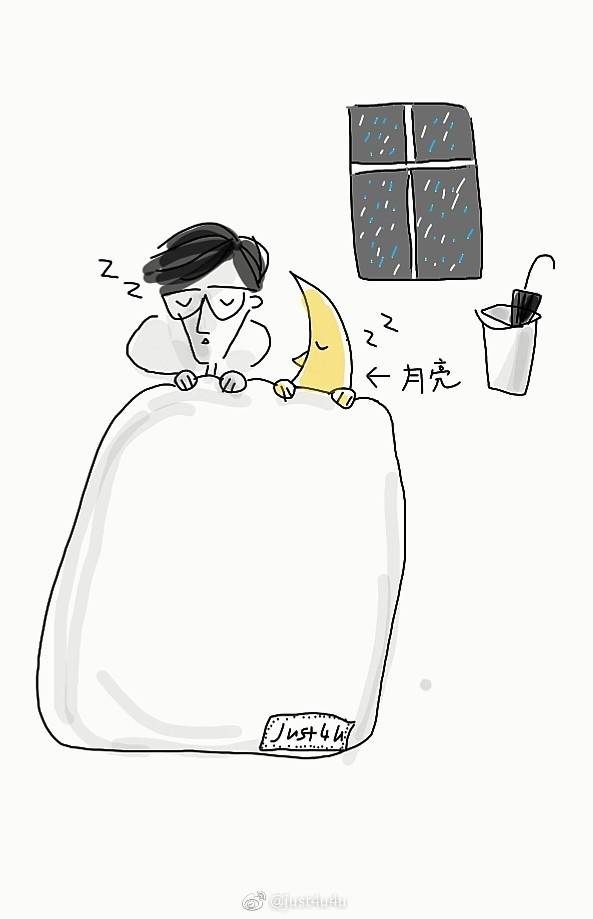 zz
zz
← 月亮
Just4u
@just4u4u